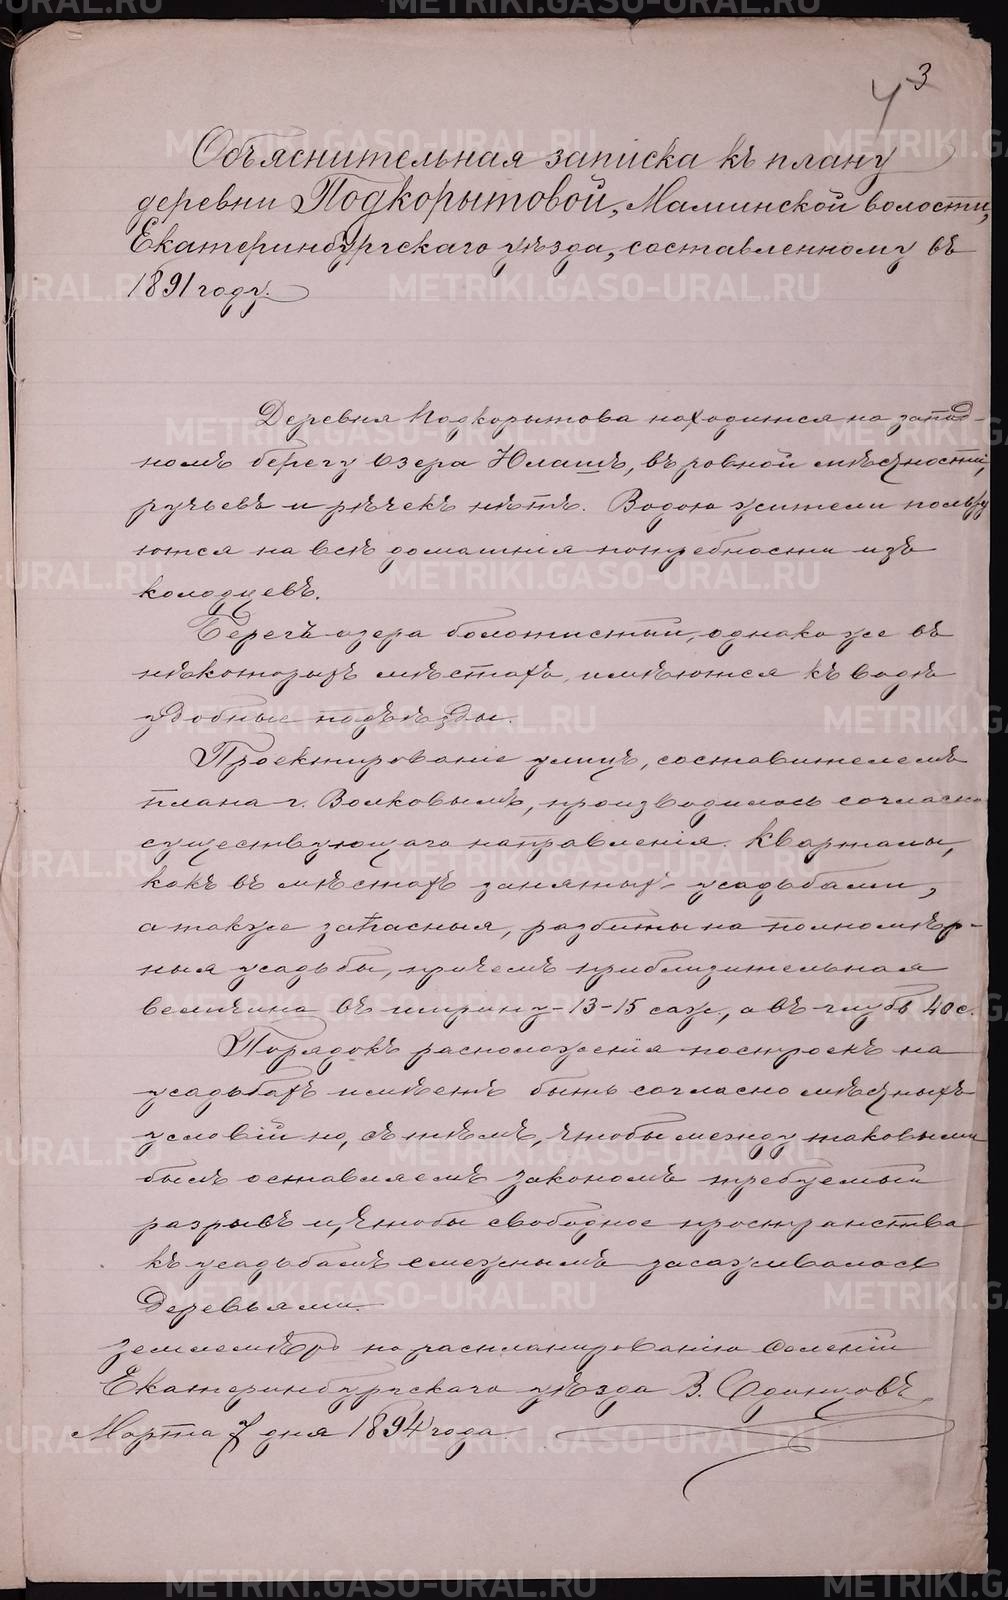 3
4
Объяснительная записка къ плану
деревни Подкорытовой, Маминской волости,
Екатеринбургскаго уѣзда, составленному въ
1891 году.
Деревня Подкорытова находится на запад-
номъ берегу озера Юлашъ, въ ровной мѣстности,
ручьевъ и рѣчекъ нѣтъ. Водою жители пользу
ются на всѣ домашнія потребности изъ
колодцевъ.
Берегъ озера болотистый, однако же въ
нѣкоторыхъ мѣстахъ, имѣются къ водѣ
удобные подъѣзды.
Проектированіе улицъ, составителемъ
плана г. Волковымъ, производилось согласно
существующаго направленія. Кварталы,
какъ въ мѣстахъ занятыхъ усадьбами,
а также запасныя, разбиты на полномѣр-
ныя усадьбы, причемъ приблизительная
величина въ ширину-13-15 саж., а въ глубь 40 с.
Порядокъ расположенія построекъ на
усадьбахъ имѣетъ быть согласно мѣстныхъ
условій но, съ тѣмъ, чтобы между таковыми
былъ оставляемъ закономъ требуемый
разрывъ и, чтобы свободное пространства
къ усадьбамъ смежнымъ засаживалось
деревьями.
Землемѣръ по распланированію селеній
Екатеринбургскаго уѣзда В. Одинцовъ
Марта 7 дня 1894 года.
METRIKI.GASO-URAL.RU